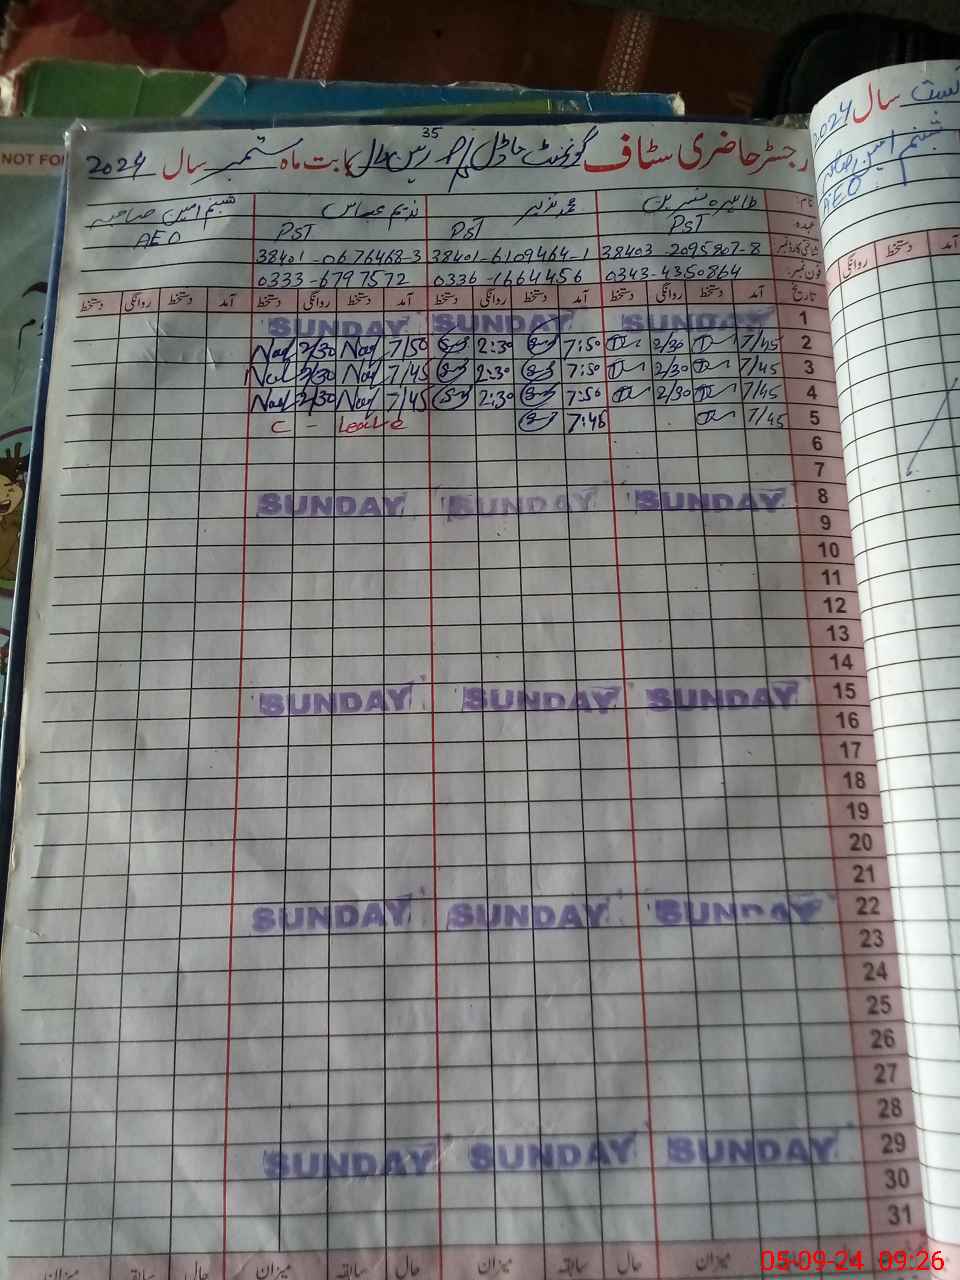 NOT FO
رجسٹر حاضری سٹاف گورنمنٹ ماڈل بابت ماہ ستمبر سال 2024
35
سال 2024
AEO
نام:
طاہرہ نسرین
محمد نذیر
ندیم عباس
شبنم امین صاحبہ
عہدہ:
PST PST PST AEO
شناختی کارڈ نمبر
38403-2095807-8 38401-6109464-1 38401-0676468-3
فون نمبر:
0343-4350864 0336-1664456 0333-6797572
تاریخ آمد دستخط روانگی دستخط آمد دستخط روانگی دستخط آمد دستخط روانگی دستخط آمد دستخط روانگی دستخط
آمد دستخط روانگی
1 SUNDAY SUNDAY SUNDAY
2 7/45 2/30 7:50 2:30 7/50 2/30
3 7/45 2/30 7:50 2:30 7/45 2/30
4 7/45 2/30 7:50 2:30 7/45 2/30
5 7/45 7:45 C - Leave
6
7
8 SUNDAY SUNDAY SUNDAY
9
10
11
12
13
14
15 SUNDAY SUNDAY SUNDAY
16
17
18
19
20
21
22 SUNDAY SUNDAY SUNDAY
23
24
25
26
27
28
29 SUNDAY SUNDAY SUNDAY
30
31
حال میزان سابقہ حال میزان سابقہ حال میزان سابقہ حال میزان
05-09-24 09:26